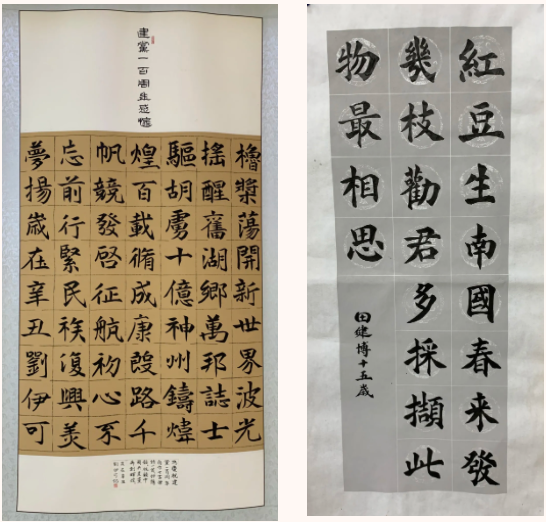 建黨一百周年感懷
櫓槳蕩開新世界波光
搖醒舊湖鄉萬邦誌士
驅胡虜十億神州鑄煒
煌百載脩成康路千
帆競發啓征航初心不
忘前行緊民族復興美
夢揚歲在辛丑劉伊可
紅豆生南國春来發
幾枝勸君多採擷此
物最相思
田健博十五歲